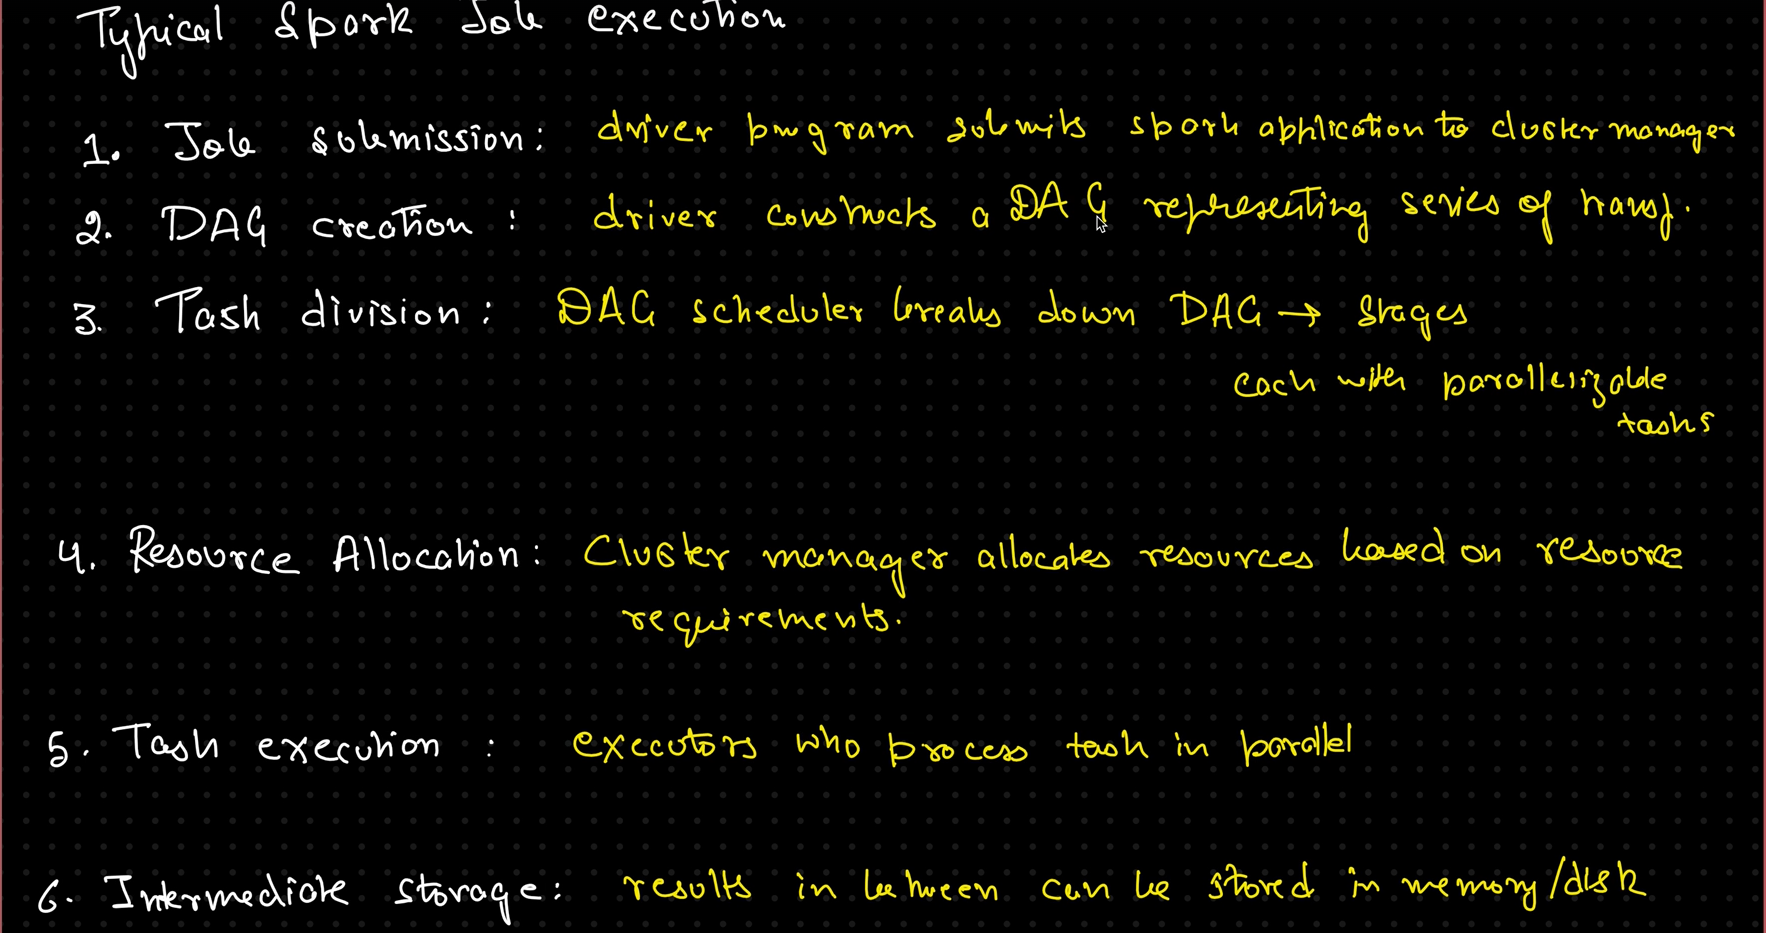 Typical Spark Job execution
1. Job submission: driver program submits spark application to cluster manager
2. DAG creation : driver constructs a DAG representing series of transf.
3. Task division : DAG scheduler breaks down DAG → Stages
each with parallelizable
tasks
4. Resource Allocation: Cluster manager allocates resources based on resource
requirements.
5. Task execution : executors who process task in parallel
6. Intermediate storage: results in between can be stored in memory/disk